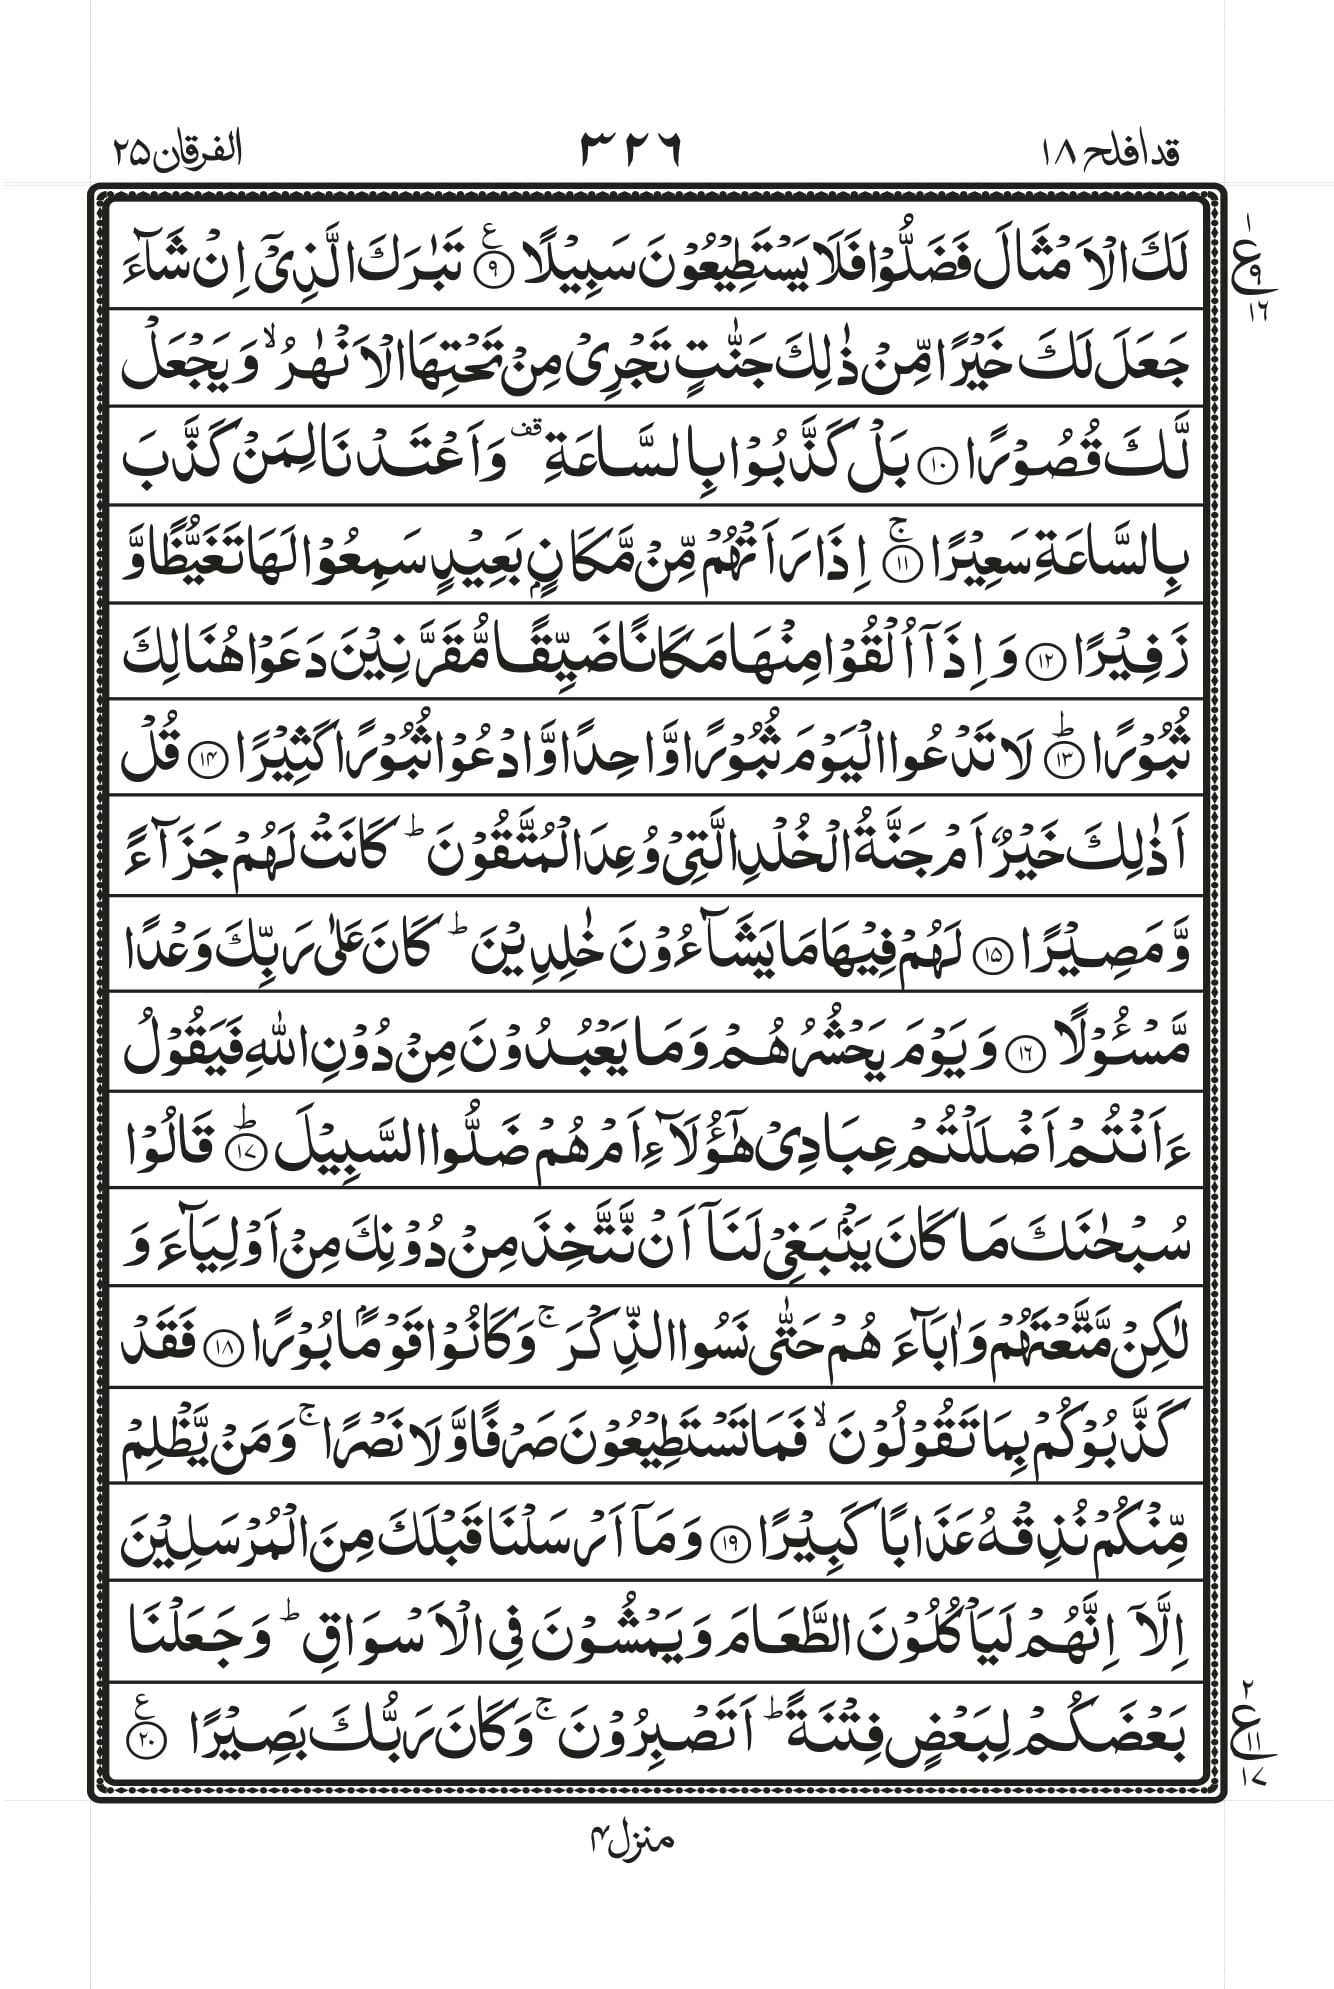 قد افلح ۱۸
۳۲٦
الفرقان ۲۵
لَكَ الۡاَمۡثَالَ فَضَلُّوۡا فَلَا يَسۡتَطِيۡعُوۡنَ سَبِيۡلًا ۹ ع تَبٰرَكَ الَّذِىۡۤ اِنۡ شَآءَ
۱
ع
۹
۱٦
جَعَلَ لَكَ خَيۡرًا مِّنۡ ذٰلِكَ جَنّٰتٍ تَجۡرِىۡ مِنۡ تَحۡتِهَا الۡاَنۡهٰرُ ۙ وَيَجۡعَلْ
لَّكَ قُصُوۡرًا ۱۰ بَلۡ كَذَّبُوۡا بِالسَّاعَةِ قف وَاَعۡتَدۡنَا لِمَنۡ كَذَّبَ
بِالسَّاعَةِ سَعِيۡرًا ۱۱ ۚ اِذَا رَاَتۡهُمۡ مِّنۡ مَّكَانٍۢ بَعِيۡدٍ سَمِعُوۡا لَهَا تَغَيُّظًا وَّ
زَفِيۡرًا ۱۲ وَاِذَاۤ اُلۡقُوۡا مِنۡهَا مَكَانًا ضَيِّقًا مُّقَرَّنِيۡنَ دَعَوۡا هُنَالِكَ
ثُبُوۡرًا ۱۳ ؕ لَا تَدۡعُوا الۡيَوۡمَ ثُبُوۡرًا وَّاحِدًا وَّادۡعُوۡا ثُبُوۡرًا كَثِيۡرًا ۱۴ قُلۡ
اَذٰلِكَ خَيۡرٌ اَمۡ جَنَّةُ الۡخُلۡدِ الَّتِىۡ وُعِدَ الۡمُتَّقُوۡنَ ؕ كَانَتۡ لَهُمۡ جَزَآءً
وَّمَصِيۡرًا ۱۵ لَهُمۡ فِيۡهَا مَا يَشَآءُوۡنَ خٰلِدِيۡنَ ؕ كَانَ عَلٰى رَبِّكَ وَعۡدًا
مَّسۡـُٔوۡلًا ۱٦ وَيَوۡمَ يَحۡشُرُهُمۡ وَمَا يَعۡبُدُوۡنَ مِنۡ دُوۡنِ اللّٰهِ فَيَقُوۡلُ
ءَاَنۡتُمۡ اَضۡلَلۡتُمۡ عِبَادِىۡ هٰٓؤُلَآءِ اَمۡ هُمۡ ضَلُّوا السَّبِيۡلَ ۱۷ ؕ قَالُوۡا
سُبۡحٰنَكَ مَا كَانَ يَنۡۢبَغِىۡ لَنَاۤ اَنۡ نَّتَّخِذَ مِنۡ دُوۡنِكَ مِنۡ اَوۡلِيَآءَ وَ
لٰكِنۡ مَّتَّعۡتَهُمۡ وَاٰبَآءَ هُمۡ حَتّٰى نَسُوا الذِّكۡرَ ۚ وَكَانُوۡا قَوۡمًۢا بُوۡرًا ۱۸ فَقَدۡ
كَذَّبُوۡكُمۡ بِمَا تَقُوۡلُوۡنَ ۙ فَمَا تَسۡتَطِيۡعُوۡنَ صَرۡفًا وَّلَا نَصۡرًا ۚ وَمَنۡ يَّظۡلِمۡ
مِّنۡكُمۡ نُذِقۡهُ عَذَابًا كَبِيۡرًا ۱۹ وَمَاۤ اَرۡسَلۡنَا قَبۡلَكَ مِنَ الۡمُرۡسَلِيۡنَ
اِلَّاۤ اِنَّهُمۡ لَيَاۡكُلُوۡنَ الطَّعَامَ وَيَمۡشُوۡنَ فِى الۡاَسۡوَاقِ ؕ وَجَعَلۡنَا
بَعۡضَكُمۡ لِبَعۡضٍ فِتۡنَةً ؕ اَتَصۡبِرُوۡنَ ۚ وَكَانَ رَبُّكَ بَصِيۡرًا ۲۰ ع
۲
ع
۱۱
۱۷
منزل ۴